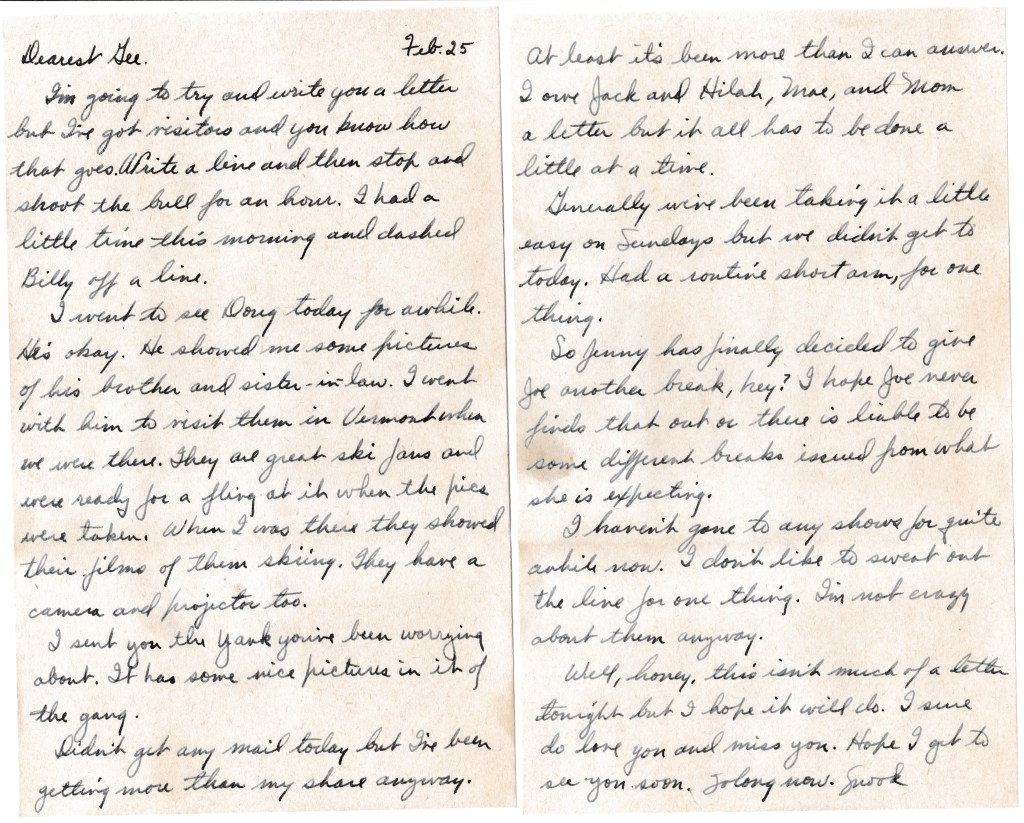 Feb. 25
Dearest Gee.
I'm going to try and write you a letter
but I've got visitors and you know how
that goes. Write a line and then stop and
shoot the bull for an hour. I had a
little time this morning and dashed
Billy off a line.
I went to see Doug today for awhile.
He's okay. He showed me some pictures
of his brother and sister-in-law. I went
with him to visit them in Vermont when
we were there. They are great ski fans and
were ready for a fling at it when the pics
were taken. When I was there they showed
their films of them skiing. They have a
camera and projector too.
I sent you the Yank you've been worrying
about. It has some nice pictures in it of
the gang.
Didn't get any mail today but I've been
getting more than my share anyway.
At least it's been more than I can answer.
I owe Jack and Hilah, Mae, and Mom
a letter but it all has to be done a
little at a time.
Generally we've been taking it a little
easy on Sundays but we didn't get to
today. Had a routine short arm, for one
thing.
So Jenny has finally decided to give
Joe another break, hey? I hope Joe never
finds that out or there is liable to be
some different breaks issued from what
she is expecting.
I haven't gone to any shows for quite
awhile now. I don't like to sweat out
the line for one thing. I'm not crazy
about them anyway.
Well, honey, this isn't much of a letter
tonight but I hope it will do. I sure
do love you and miss you. Hope I get to
see you soon. Solong now. Snook